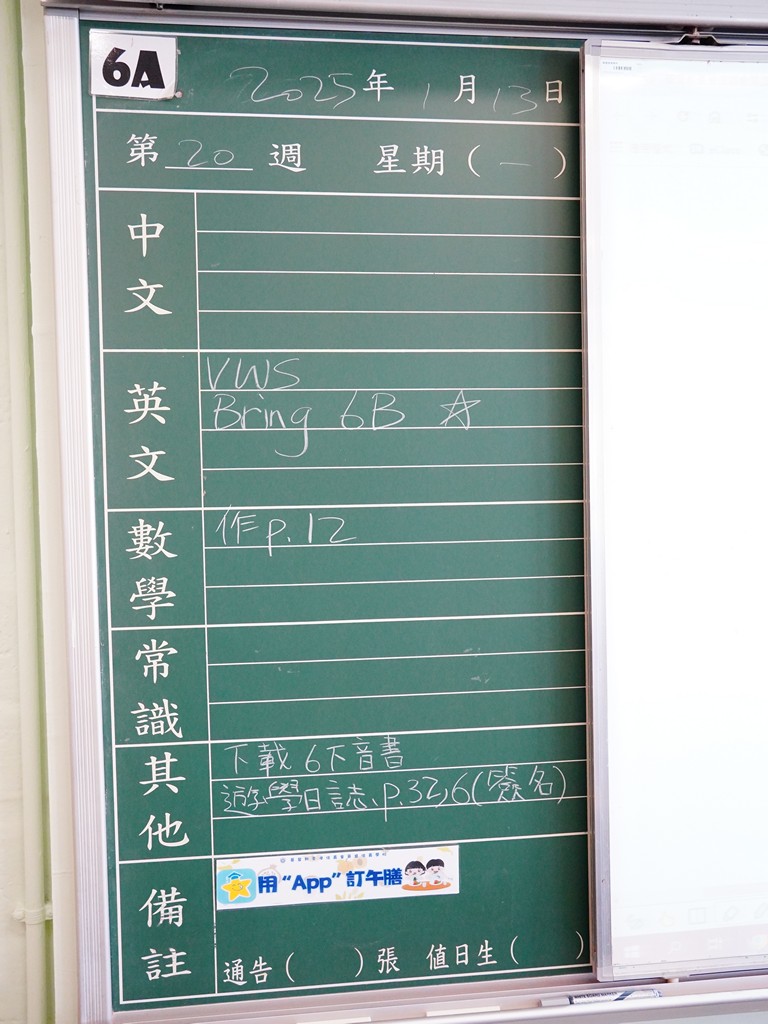 6A
2025年 1月 13日
第 20 週 星期 ( 一 )
中文
英文
VWS
Bring 6B ☆
數學
作 p.12
常識
其他
下載 6下音書
遊學日誌、p.32,6(簽名)
備註
用 “App” 訂午膳
通告 ( ) 張 值日生 ( )